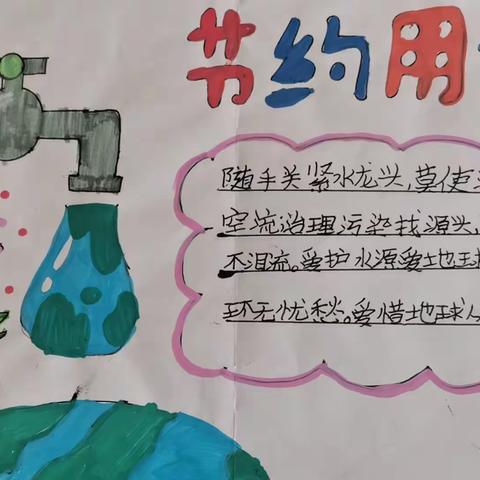 节约用
随手关紧水龙头,莫使
空流治理污染找源头,
不泪流。爱护水源爱地球
环无忧愁。爱惜地球